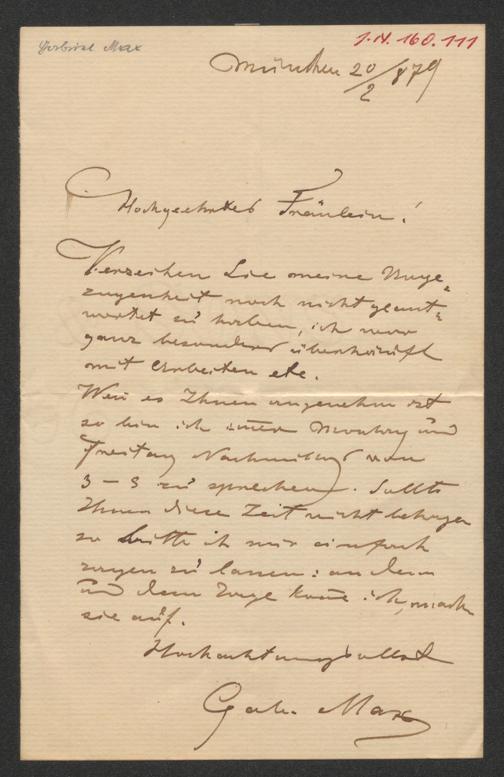 Gabriel Max
I.N. 160.111
München 20/2 879
Hochgeehrtes Fräulein!
Verzeihen Sie meine Unge-
zogenheit noch nicht geant-
wortet zu haben, ich war
ganz besonders überhäuft
mit Arbeiten etc.
Wen es Ihnen angenehm ist
so bin ich imer Montag und
Freitag Nachmittag von
3 – 5 zu sprechen. Sollte
Ihnen diese Zeit nicht behagen
so bitte ich mir einfach
sagen zu lassen: an dem
und dem Tage kome ich, mach
sie auf.
Hochachtungsvollst
Gab. Max